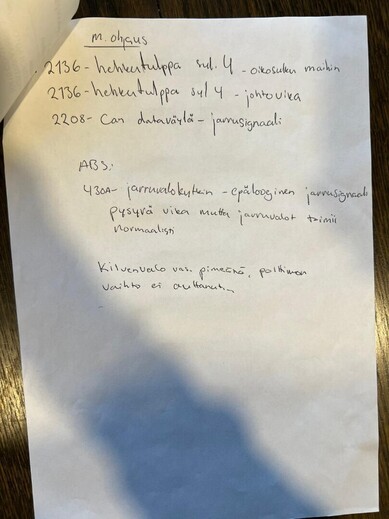 m. ohjaus
2136 - hehkutulppa syl. 4 - oikosulku maihin
2136 - hehkutulppa syl 4 - johtovika
2208 - Can dataväylä - jarrusignaali
ABS:
430A - jarruvalokytkin - epälooginen jarrusignaali
pysyvä vika mutta jarruvalot toimii
normaalisti
Kilvenvalo vas. pimeänä, polttimon
vaihto ei auttanut...